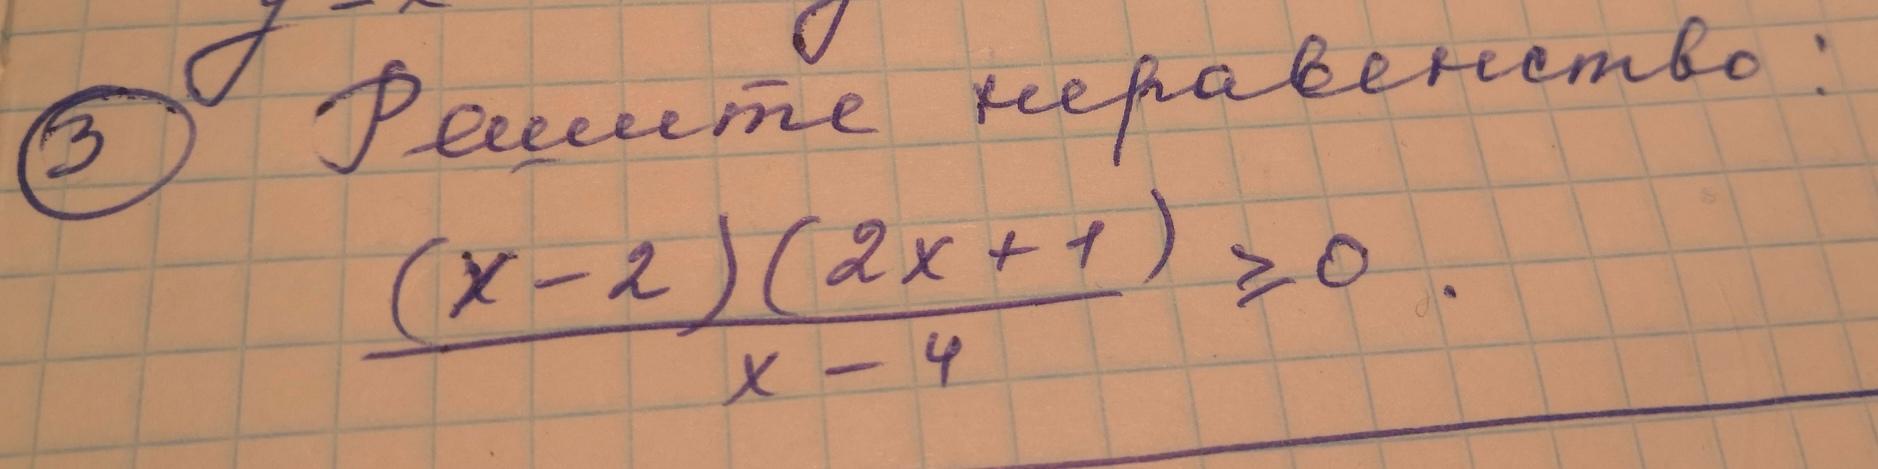 ③ Решите неравенство:
(x-2)(2x+1) ≥ 0.
x - 4